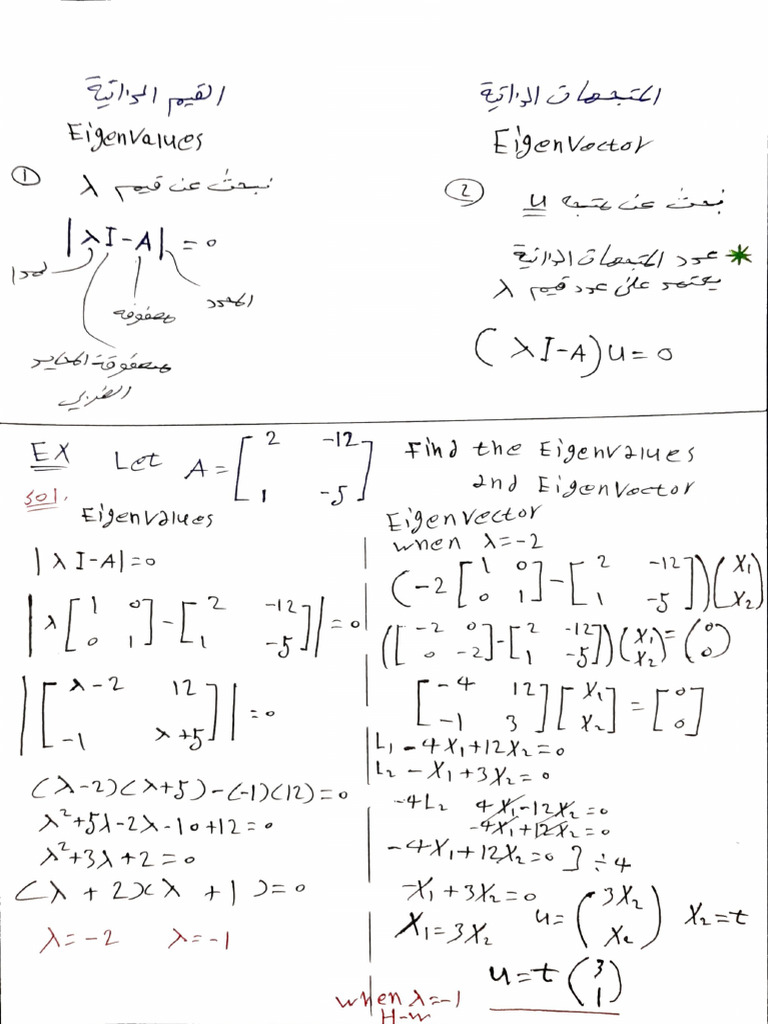 القيم الذاتية
Eigenvalues
① نبحث عن قيم λ
|λI-A| = 0
لمدا
المحدد
مصفوفة
مصفوفة المحايد
الضربي
المتجهات الذاتية
Eigenvector
② نبحث عن متجه u
* عدد المتجهات الذاتية
يعتمد على عدد قيم λ
(λI-A)u=0
EX Let A = [2 -12; 1 -5] Find the Eigenvalues
and Eigenvector
sol.
Eigenvalues
|λI-A|=0
|λ[1 0; 0 1]-[2 -12; 1 -5]|=0
|[λ-2 12; -1 λ+5]|=0
(λ-2)(λ+5)-(-1)(12)=0
λ²+5λ-2λ-10+12=0
λ²+3λ+2=0
(λ+2)(λ+1)=0
λ=-2 λ=-1
Eigenvector
when λ=-2
(-2[1 0; 0 1]-[2 -12; 1 -5])(X₁; X₂)
([-2 0; 0 -2]-[2 -12; 1 -5])(X₁; X₂)=(0; 0)
[-4 12; -1 3][X₁; X₂]=[0; 0]
L₁ -4X₁+12X₂=0
L₂ -X₁+3X₂=0
-4L₂ 4X₁-12X₂=0
-4X₁+12X₂=0
-4X₁+12X₂=0 } ÷4
-X₁+3X₂=0
X₁=3X₂ u=(3X₂; X₂) X₂=t
u=t(3; 1)
when λ=-1
H-w